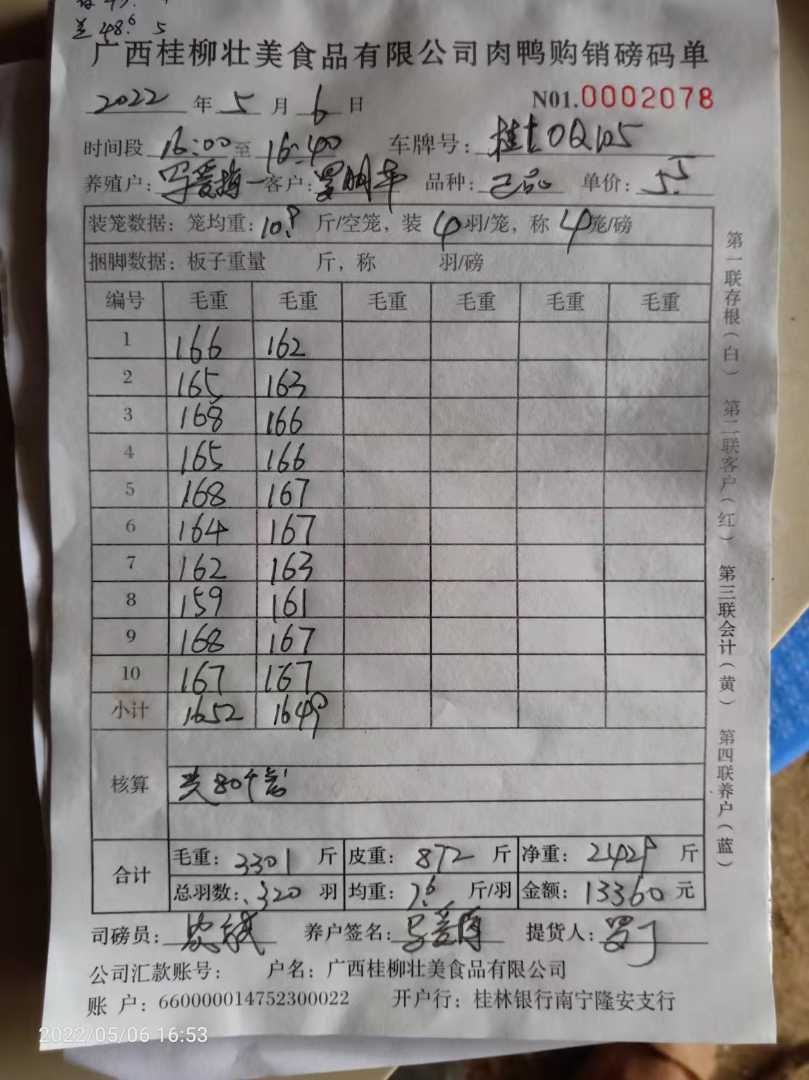 兰 48.6 5
广西桂柳壮美食品有限公司肉鸭购销磅码单
2022 年 5 月 6 日 N01.0002078
时间段 16:00 至 16:40 车牌号:
养殖户: 客户: 品种: 单价: 5.5
装笼数据: 笼均重: 10.9 斤/空笼, 装 4 羽/笼, 称 4 笼/磅
捆脚数据: 板子重量 斤, 称 羽/磅
编号 毛重 毛重 毛重 毛重 毛重 毛重
1 166 162
2 165 163
3 168 166
4 165 166
5 168 167
6 164 167
7 162 163
8 159 161
9 168 167
10 167 167
小计 1652 1649
核算 共80个笼
合计 毛重: 3301 斤 皮重: 872 斤 净重: 2429 斤
总羽数: 320 羽 均重: 7.6 斤/羽 金额: 13360 元
司磅员: 养户签名: 提货人:
公司汇款账号: 户名: 广西桂柳壮美食品有限公司
账 户: 660000014752300022 开户行: 桂林银行南宁隆安支行
第一联存根(白) 第二联客户(红) 第三联会计(黄) 第四联养户(蓝)
2022/05/06 16:53